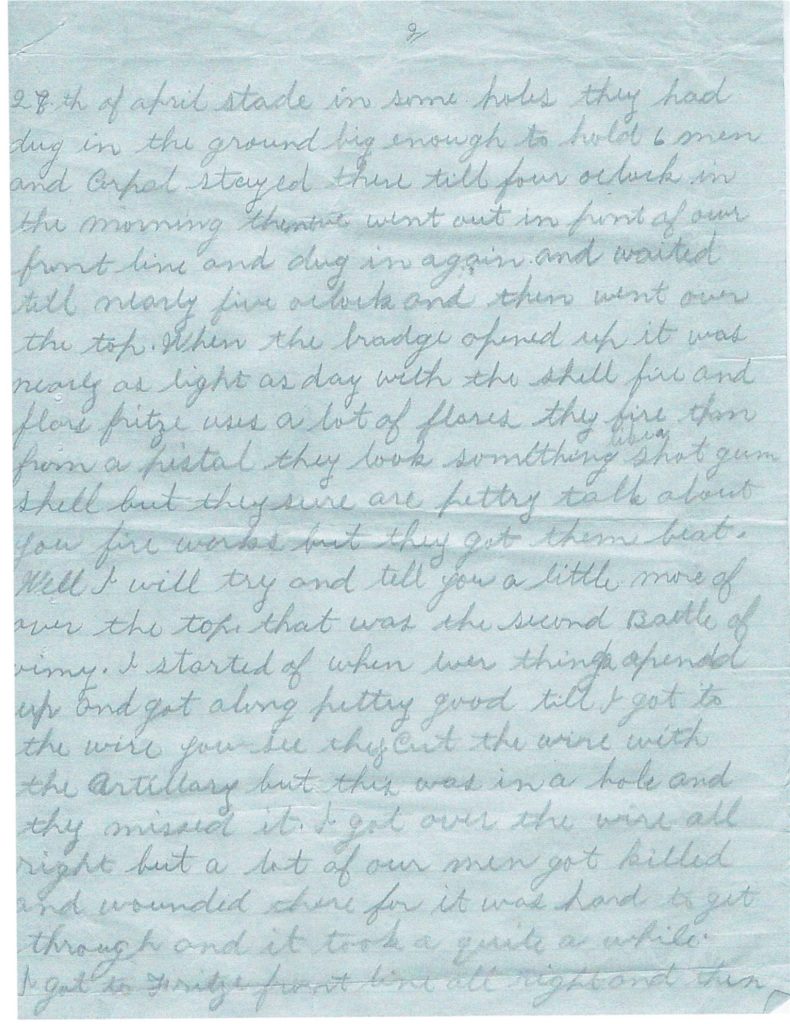 2
28th of april stade in some holes they had
dug in the ground big enough to hold 6 men
and Corpel stayed there till four oclock in
the morning then we went out in frint of our
front line and dug in again and waited
till nearly five oclock and then went over
the top. When the bradge opened up it was
nearly as light as day with the shell fire and
flars fritze uses a lot of flares they fire them
from a pistal they look something like a shot gum
shell but they sure are pettry talk about
you fire works but they got them beat.
Well I will try and tell you a little more of
over the top. that was the second Battle of
vimy. I started of when ever things opend
up and got along pettry good till I got to
the wire you see they Cut the wire with
the Artillary but this was in a hole and
they missed it. I got over the wire all
right but a lot of our men got killed
and wounded there for it was hard to get
through and it took a quite a while
I got to Fritze front line all right and then